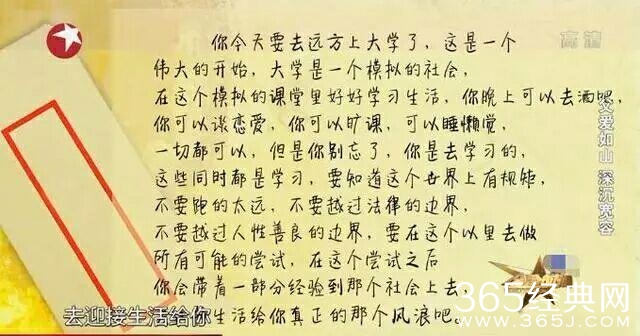 高清
你今天要去远方上大学了，这是一个
伟大的开始，大学是一个模拟的社会，
在这个模拟的课堂里好好学习生活，你晚上可以去酒吧，
你可以谈恋爱，你可以旷课，可以睡懒觉，
一切都可以，但是你别忘了，你是去学习的，
这些同时都是学习，要知道这个世界上有规矩，
不要跑的太远，不要越过法律的边界，
不要越过人性善良的边界，要在这个以里去做
所有可能的尝试，在这个尝试之后
你会带着一部分经验到那个社会上去
生活给你真正的那个风浪吧
父爱如山 深沉宽容
去迎接生活给你
365经典网
www.365J.com